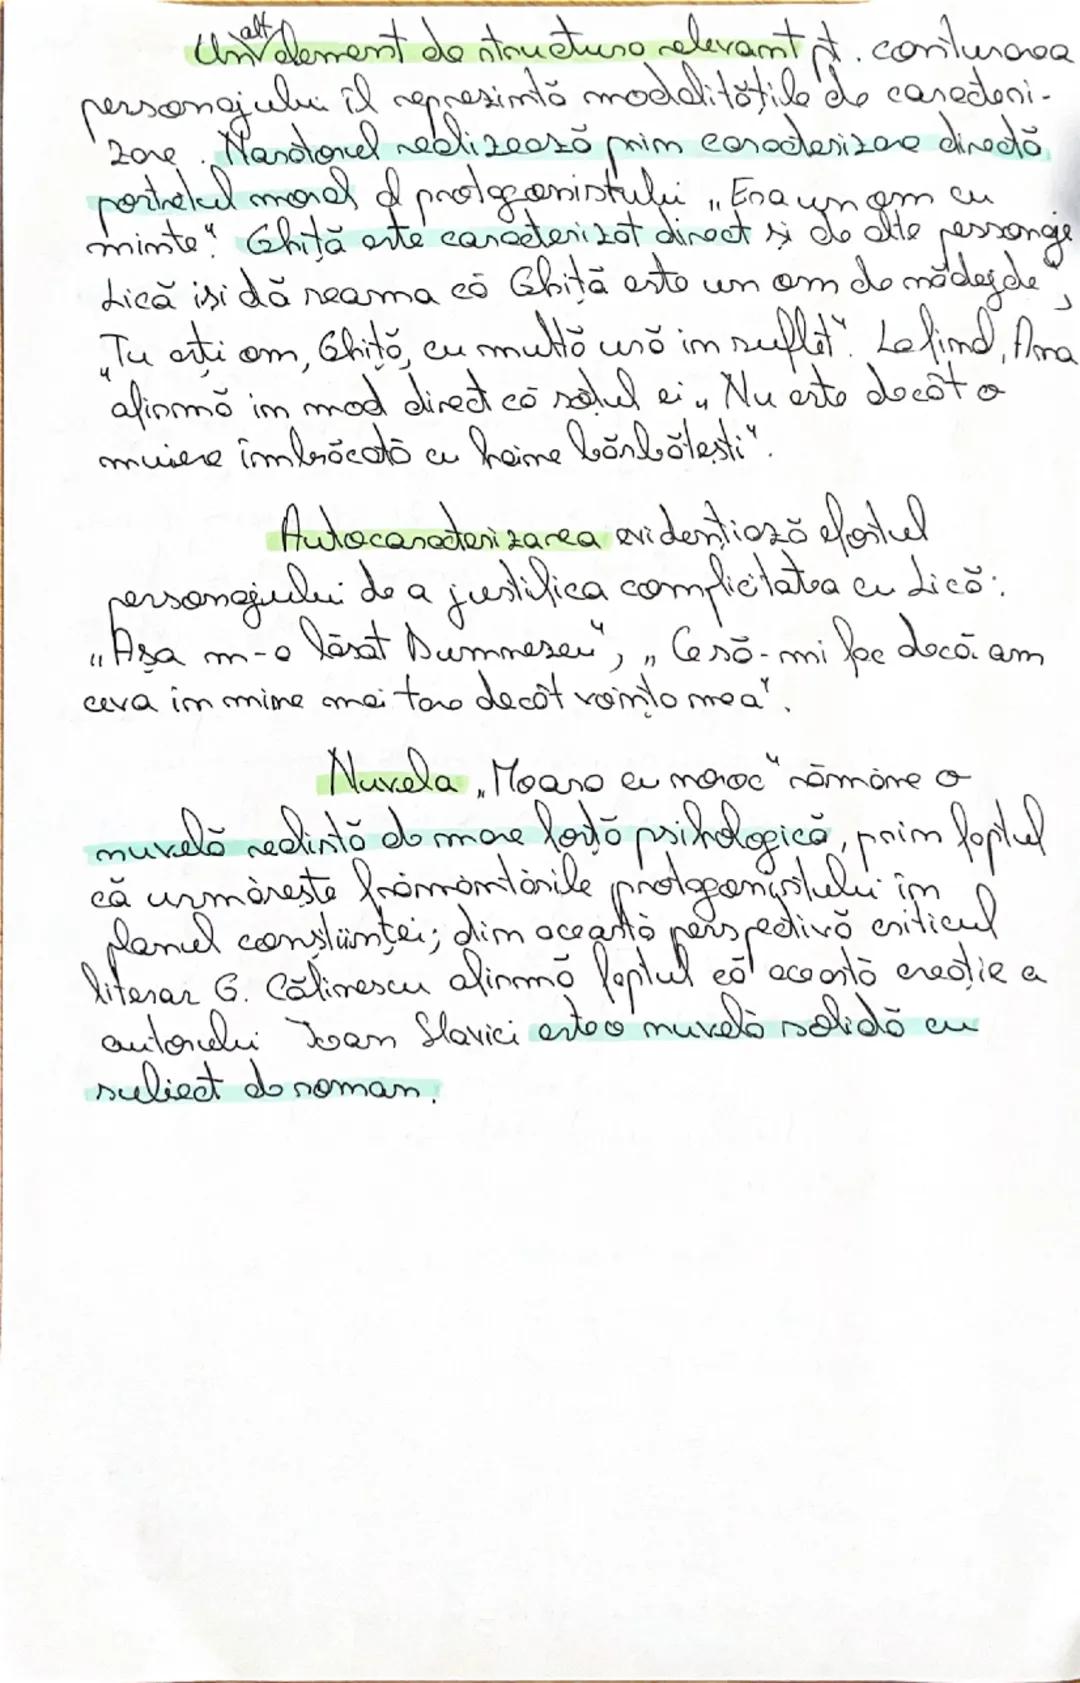 Un alt element de structura relevant pt. conturarea
personajului îl reprezintă modalitățile de caracteri-
zare. Naratorul realizează prin caracterizare directă
portretul moral al protagonistului „Era un om cu
minte". Ghiță este caracterizat direct și de alte personaje
Lică iși dă seama că Ghiță este un om de nădejde",
„Tu ești om, Ghiță, cu multă ură in suflet". La fimd, Ana
afirmă in mod direct că soțul ei „Nu este decât o
muiere îmbrăcată cu haine bărbătești".
Autocaracterizarea evidențiază efortul
personajului de a justifica complicitatea cu Lică:
„Așa m-a lăsat Dumnezeu", „Ce să-mi fac dacă am
ceva in mine mai tare decât voința mea".
Nuvela „Moara cu noroc" rămâne o
nuvelă realistă de mare forță psihologică, prin faptul
că urmărește frământările protagonistului în
planul conștiinței; din această perspectivă criticul
literar G. Călinescu afirmă faptul că această creație a
autorului Ioan Slavici este o nuvelă solidă cu
subiect de roman.